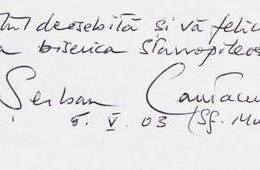 deosebită și vă felic
a biserica stavropoleos
Șerban Cantacu
5. V. 03 (Sf. Mu